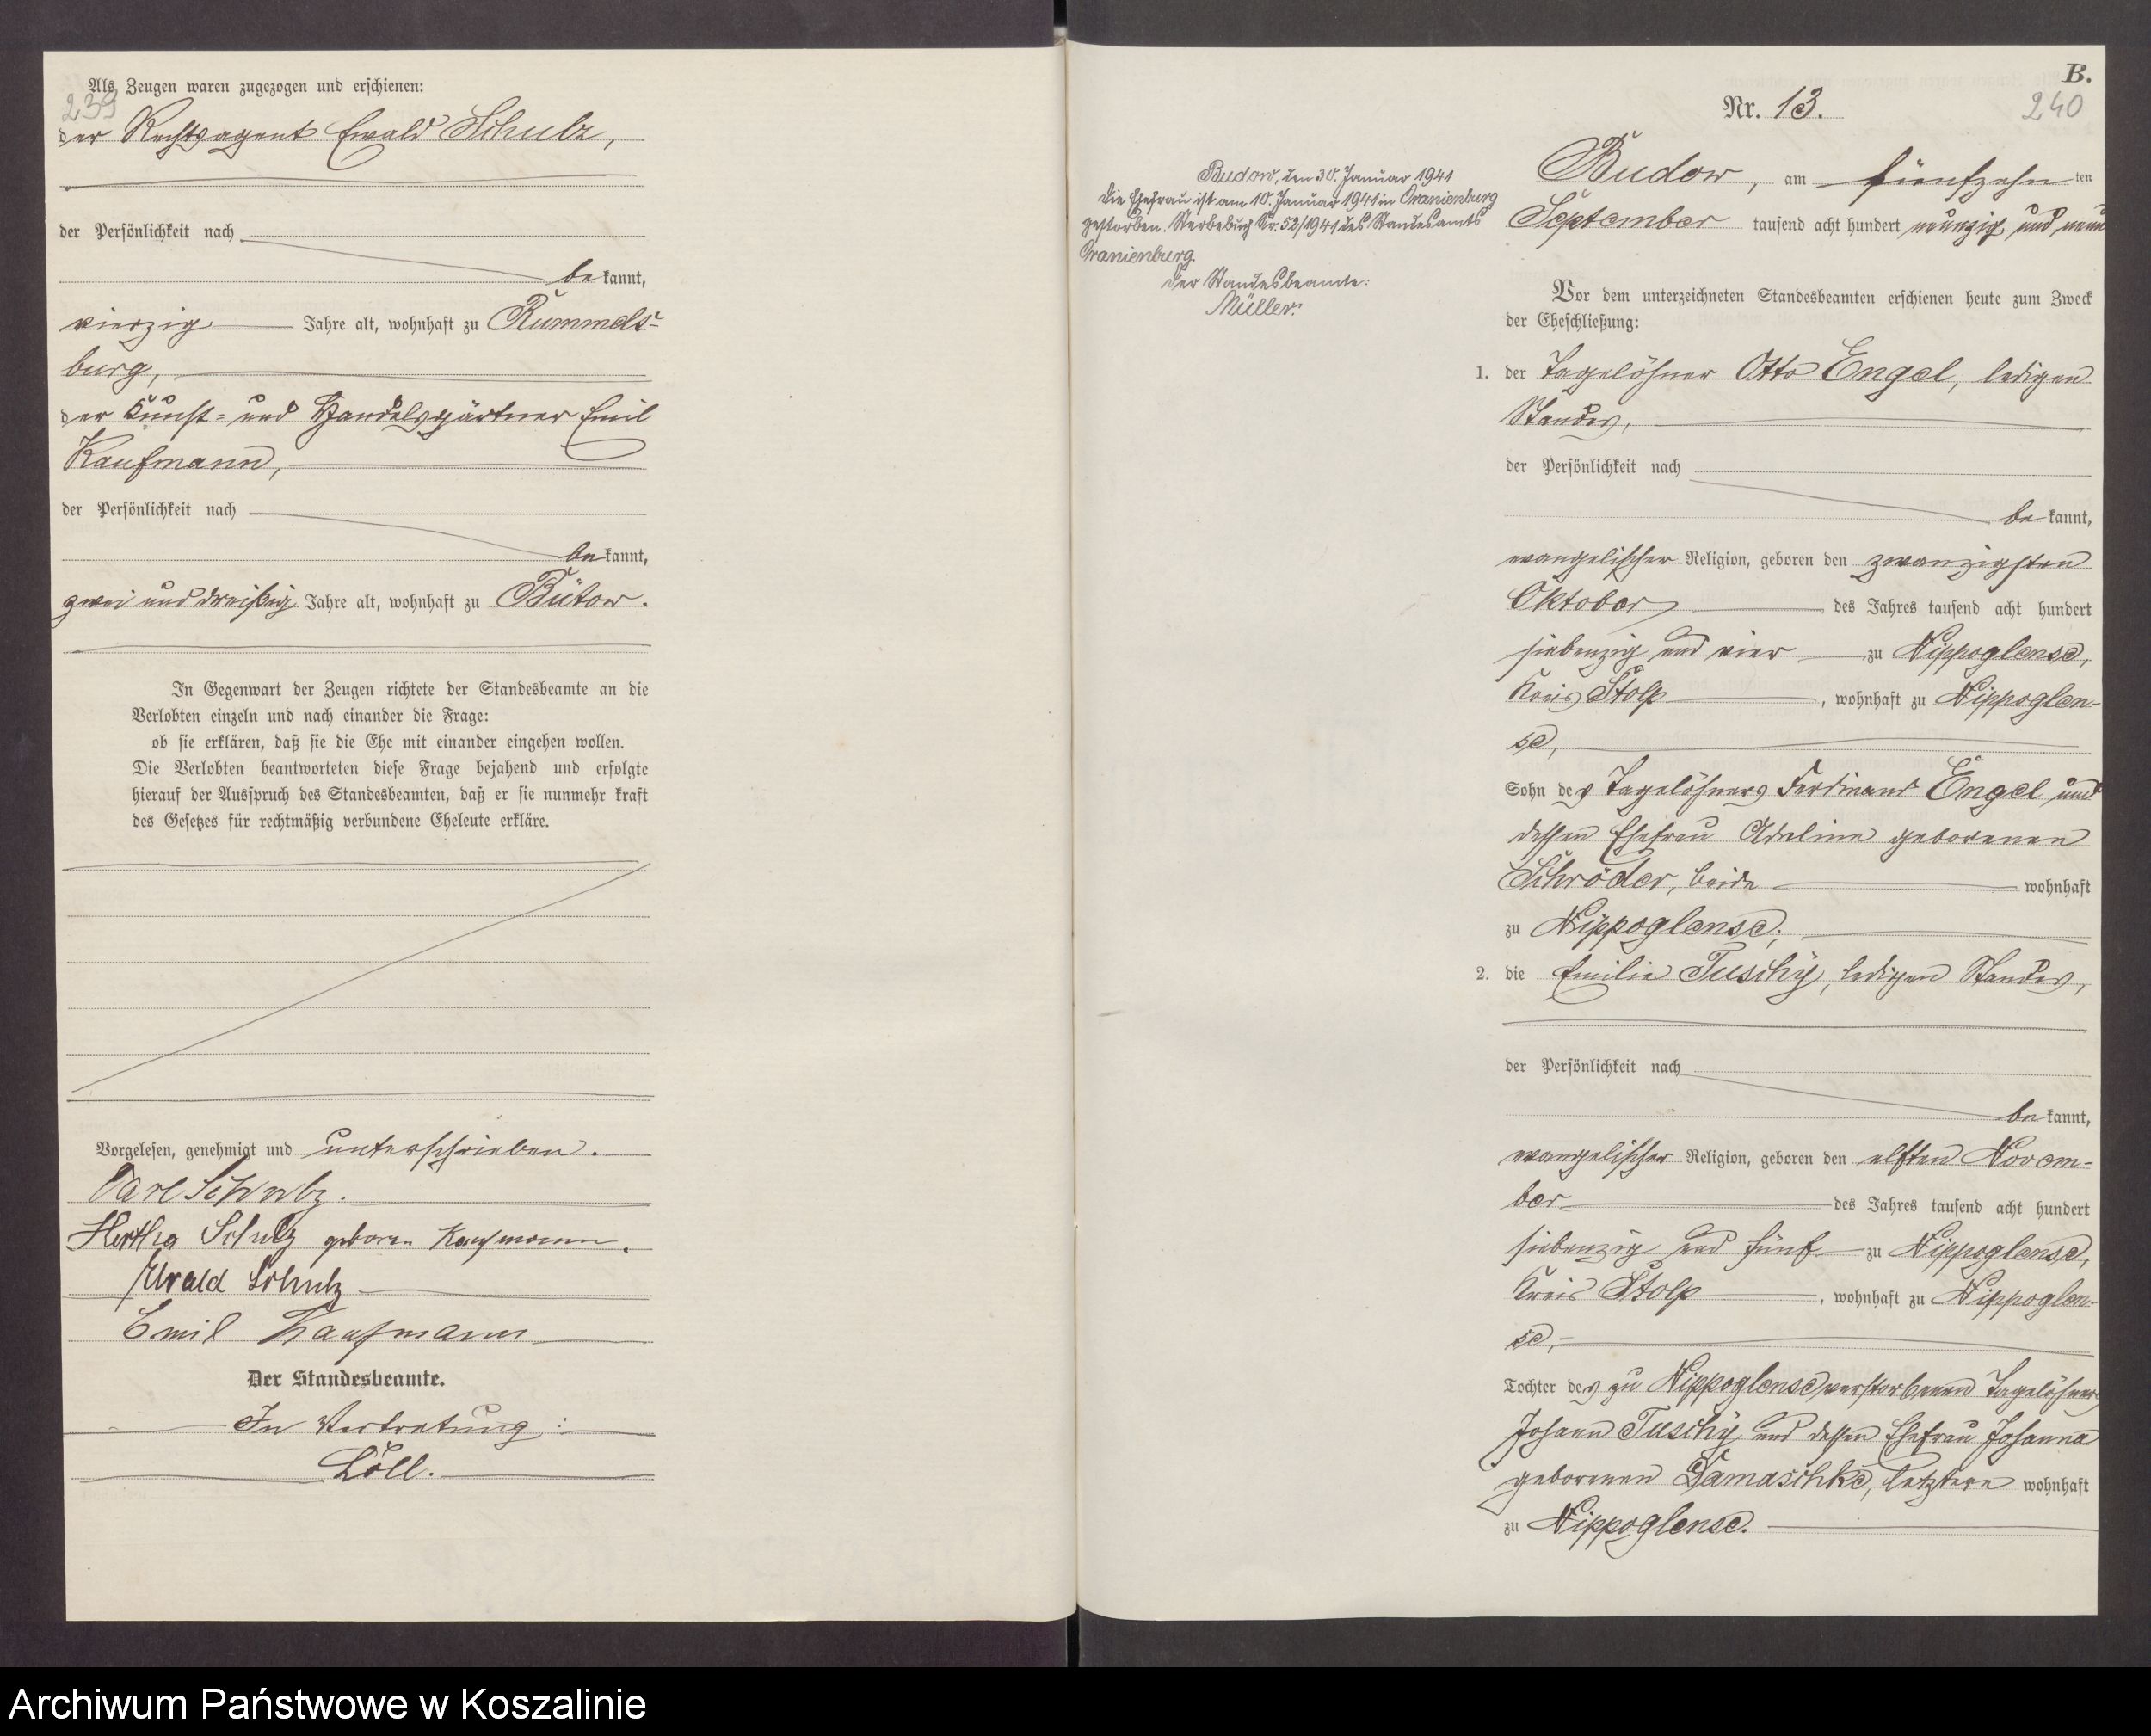 Als Zeugen waren zugezogen und erschienen:
239
der Rechtsagent Ewald Schulz,
der Persönlichkeit nach
bekannt,
vierzig Jahre alt, wohnhaft zu Rummels-
burg,
der Kunst- und Handelsgärtner Emil
Kaufmann,
der Persönlichkeit nach
bekannt,
zwei und dreißig Jahre alt, wohnhaft zu Bütow.
In Gegenwart der Zeugen richtete der Standesbeamte an die
Verlobten einzeln und nach einander die Frage:
ob sie erklären, daß sie die Ehe mit einander eingehen wollen.
Die Verlobten beantworteten diese Frage bejahend und erfolgte
hierauf der Ausspruch des Standesbeamten, daß er sie nunmehr kraft
des Gesetzes für rechtmäßig verbundene Eheleute erkläre.
Vorgelesen, genehmigt und unterschrieben.
Carl Schulz.
Hertha Schulz geboren Kaufmann.
Ewald Schulz
Emil Kaufmann
Der Standesbeamte.
In Vertretung:
Löll.
B.
Nr. 13.
240
Budow, den 30. Januar 1941
Die Ehefrau ist am 10. Januar 1941 in Oranienburg
gestorben. Sterbebuch Nr. 52/1941 des Standesamts
Oranienburg.
Der Standesbeamte:
Müller.
Budow, am fünfzehn ten
September tausend acht hundert neunzig und neun
Vor dem unterzeichneten Standesbeamten erschienen heute zum Zweck
der Eheschließung:
1. der Tagelöhner Otto Engel, ledigen
Standes,
der Persönlichkeit nach
bekannt,
evangelischer Religion, geboren den zwanzigsten
Oktober des Jahres tausend acht hundert
siebenzig und vier zu Nippoglense,
Kreis Stolp, wohnhaft zu Nippoglen-
se,
Sohn des Tagelöhners Ferdinand Engel und
dessen Ehefrau Adeline geborenen
Schröder, beide wohnhaft
zu Nippoglense;
2. die Emilie Tuschy, ledigen Standes,
der Persönlichkeit nach
bekannt,
evangelischer Religion, geboren den elften Novem-
ber des Jahres tausend acht hundert
siebenzig und fünf zu Nippoglense,
Kreis Stolp, wohnhaft zu Nippoglen-
se,
Tochter des zu Nippoglense verstorbenen Tagelöhners
Johann Tuschy und dessen Ehefrau Johanna
geborenen Damaschke, letztere wohnhaft
zu Nippoglense.
Archiwum Państwowe w Koszalinie